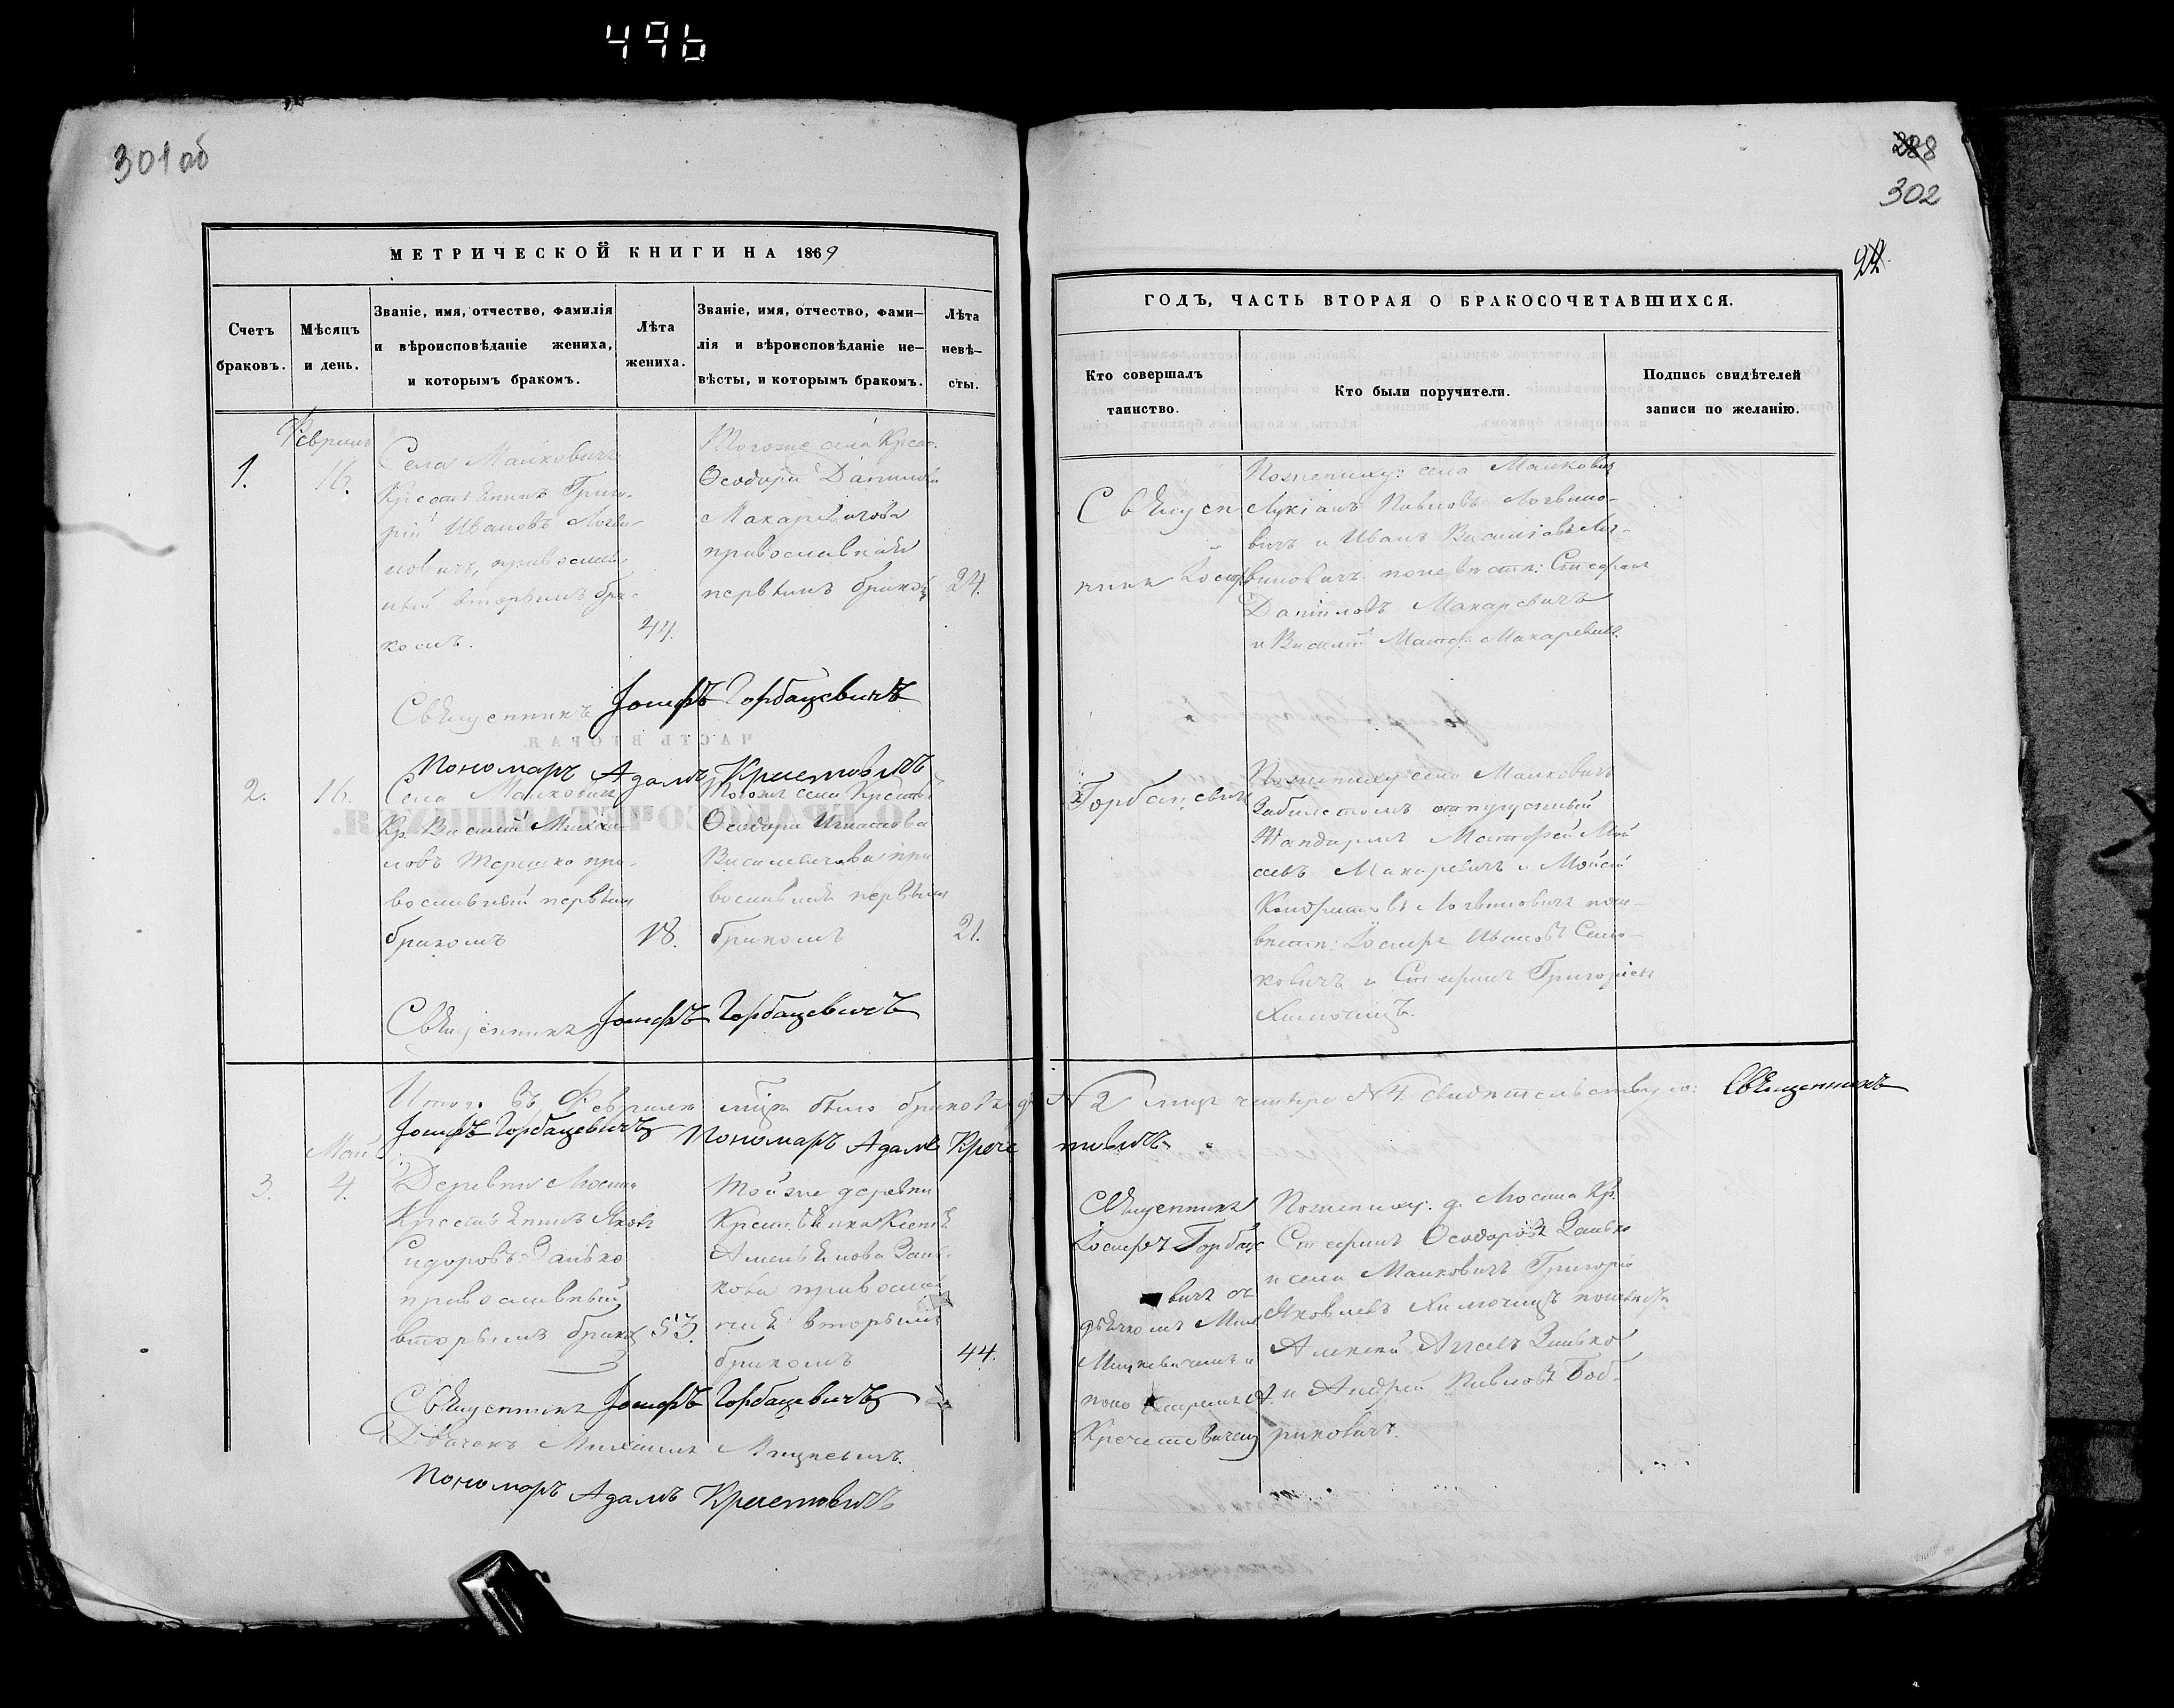 496
301 об
288
302
22.
МЕТРИЧЕСКОЙ КНИГИ НА 1869
Счетъ браковъ.
Мѣсяцъ и день.
Званіе, имя, отчество, фамилія
и вѣроисповѣданіе жениха,
и которымъ бракомъ.
Лѣта жениха.
Званіе, имя, отчество, фами-
лія и вѣроисповѣданіе не-
вѣсты, и которымъ бракомъ.
Лѣта невѣ-
сты.
Февраль
1.
16.
Села Малковичъ
Крестьянинъ Григо-
рій Ивановъ Логви-
новичъ, православ-
ный вторымъ бра-
комъ.
44.
Тогоже села Крест.
Ѳеодора Данилова
Макаревичова
православная
первымъ бракомъ
24.
Священникъ Іосифъ Горбацевичъ
Пономаръ Адамъ Кречетовичъ
2.
16.
Села Малковичъ
Кр. Василій Михай-
ловъ Терешко пра-
вославный первымъ
бракомъ
18.
Тогоже села Крестьян
Ѳеодора Игнатова
Василевичова пра
вославная первымъ
бракомъ
21.
Священникъ Іосифъ Горбацевичъ
Итого въ Февралѣ мѣсяцѣ было браковъ
Іосифъ Горбацевичъ Пономаръ Адамъ Крече
Май
3.
4.
Деревни Люсина
Крестьянинъ Яковъ
Сидоровъ Занько
православный
вторымъ бракомъ
53.
Тойже деревни
Крестьянка
Занько-
кова православ
ная вторымъ
бракомъ
44.
Священникъ Іосифъ Горбацевичъ
Дьячекъ Михаилъ Мицкевичъ.
Пономаръ Адамъ Кречетовичъ
ГОДЪ, ЧАСТЬ ВТОРАЯ О БРАКОСОЧЕТАВШИХСЯ.
Кто совершалъ
таинство.
Кто были поручители.
Подпись свидѣтелей
записи по желанію.
Священ
никъ Іосифъ
Пожениху: села Малкович
Лукіанъ Павловъ Логвино-
вичъ и Иванъ Васильевъ Лог-
виновичъ поневѣстѣ: Стефанъ
Даніиловъ Макаревичъ
и Василій Матѳ. Макаревичъ.
Горбацевичъ
Пожениху села Малковичъ
отпускный
Жандармъ Матѳей Мой
сеевъ Макаревичъ и Мойсей
Кондратовъ Логвиновичъ поне-
вѣстѣ: Іосифъ Ивановъ Сень-
ковичъ и Стефанъ Григорьевъ
Химочицъ.
№ 2 № 4. свидетельствую: Священникъ
товичъ
Священникъ
Іосифъ Горбаце
вичъ съ
дьячкомъ Мих.
Мицкевичемъ и
пономаремъ А.
Кречетовичемъ
Пожениху. д. Люсина Кр.
Стефанъ Ѳеодоровъ Занько
и села Малковичъ Григорій
Яковлевъ Химочицъ поневѣстѣ
Алексѣй Занько
и Андрей Павловъ Боб-
риковичъ.